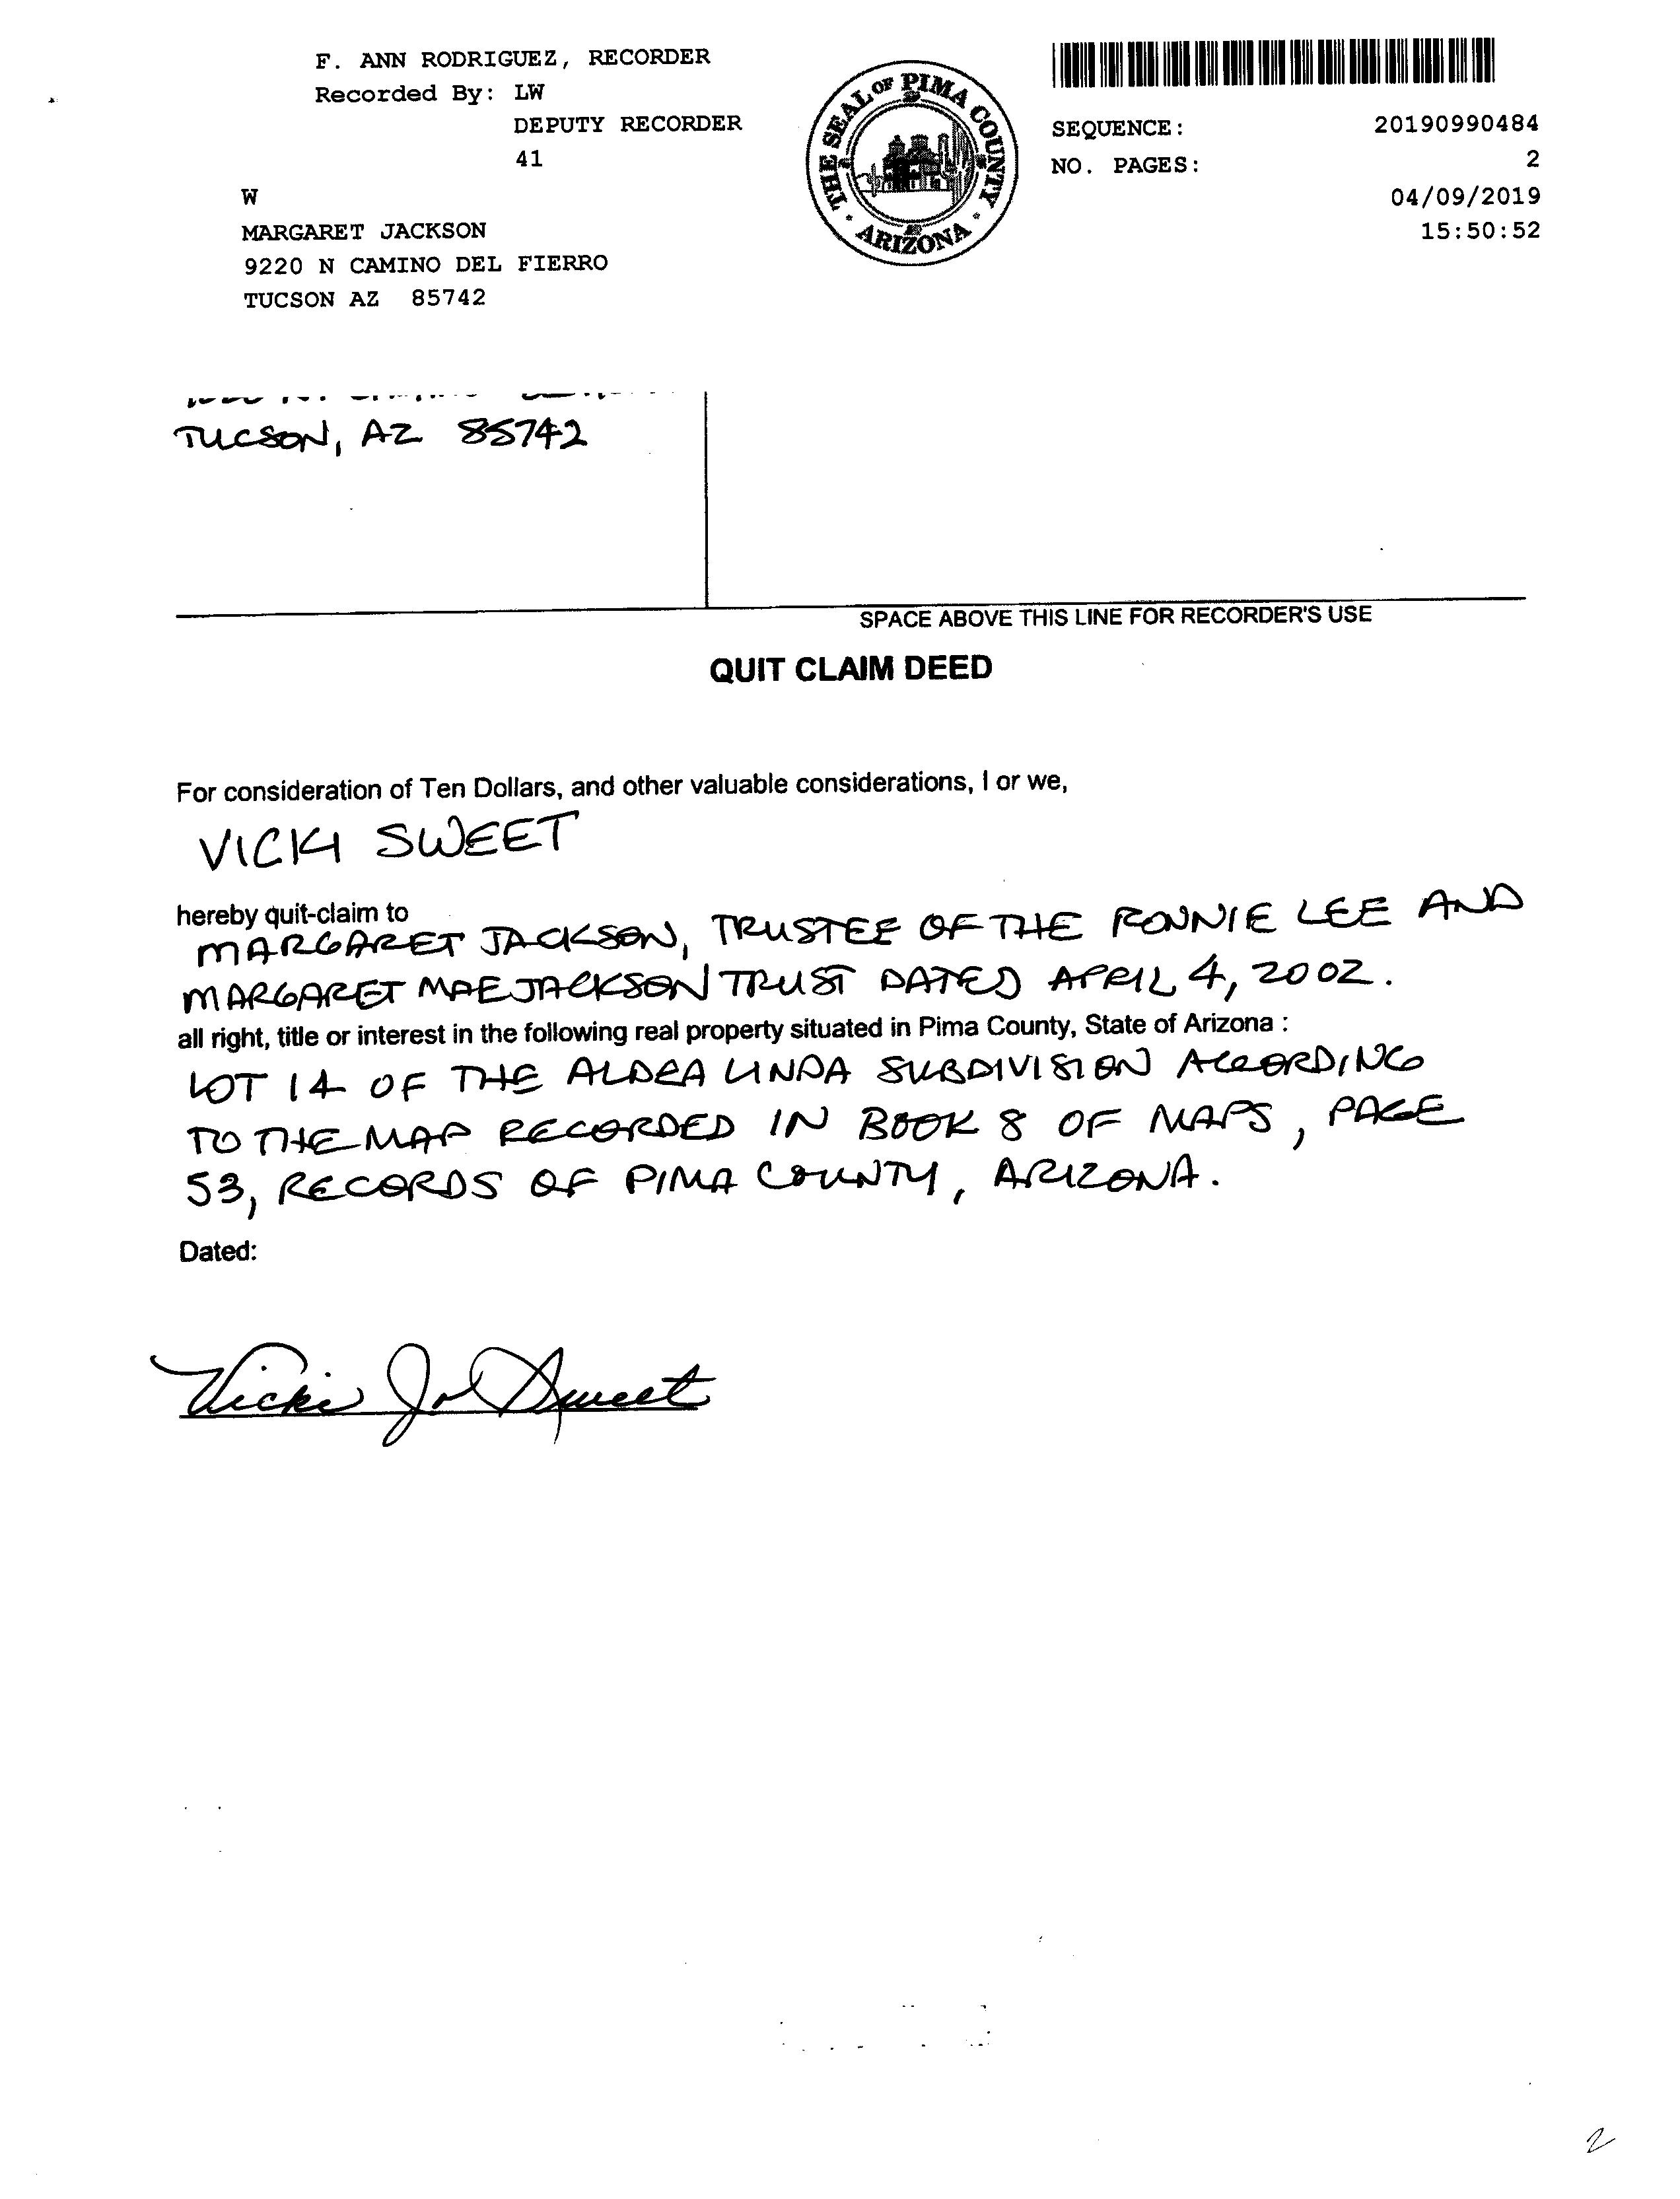 F. ANN RODRIGUEZ, RECORDER
Recorded By: LW
DEPUTY RECORDER
41
W
MARGARET JACKSON
9220 N CAMINO DEL FIERRO
TUCSON AZ 85742
THE SEAL OF PIMA COUNTY
ARIZONA
SEQUENCE: 20190990484
NO. PAGES: 2
04/09/2019
15:50:52
TUCSON, AZ 85742
SPACE ABOVE THIS LINE FOR RECORDER'S USE
QUIT CLAIM DEED
For consideration of Ten Dollars, and other valuable considerations, I or we,
VICKI SWEET
hereby quit-claim to
MARGARET JACKSON, TRUSTEE OF THE RONNIE LEE AND
MARGARET MAE JACKSON TRUST DATED APRIL 4, 2002.
all right, title or interest in the following real property situated in Pima County, State of Arizona :
LOT 14 OF THE ALDEA LINDA SUBDIVISION ACCORDING
TO THE MAP RECORDED IN BOOK 8 OF MAPS, PAGE
53, RECORDS OF PIMA COUNTY, ARIZONA.
Dated:
Vicki Jo Sweet
2